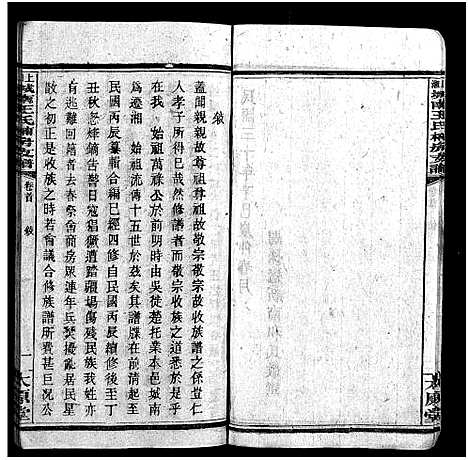 民國三十年辛巳歲仲春月
敘
蓋聞親親故尊祖尊祖故敬宗敬宗故收族譜之係豈仁
人孝子所已哉然修譜者而敬宗收族之道悉於是乎
在我 萬祿公於前明時由吳徙楚托業本邑城南
是為 始祖流傳十五世於茲矣其譜牒在前清起至
民國丙辰纂輯合編已經四修自民國丙辰續修後至丁
丑秋忽烽鏑告警日寇猖獗遭踏疆場傷殘民族我姓亦
有此厄者去春祭商房眾連年兵燹擾亂居民星
散政之初正是收族之時若會議合修族譜所費甚巨況公
城南王氏補房支譜
卷首 敘
一
太原堂